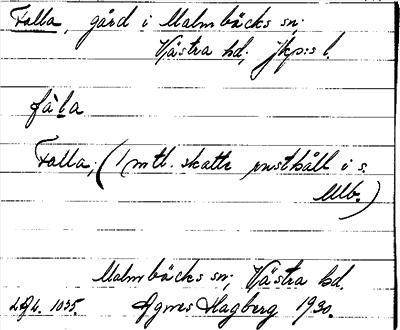 Falla, gård i Malmbäcks sn;
Västra hd; Jkp:s l.
fàla
Falla; (1 mtl. skatte rusthåll i s.
Mlb.)
Malmbäcks sn; Västra hd.
1035. Agnes Hagberg 1930.